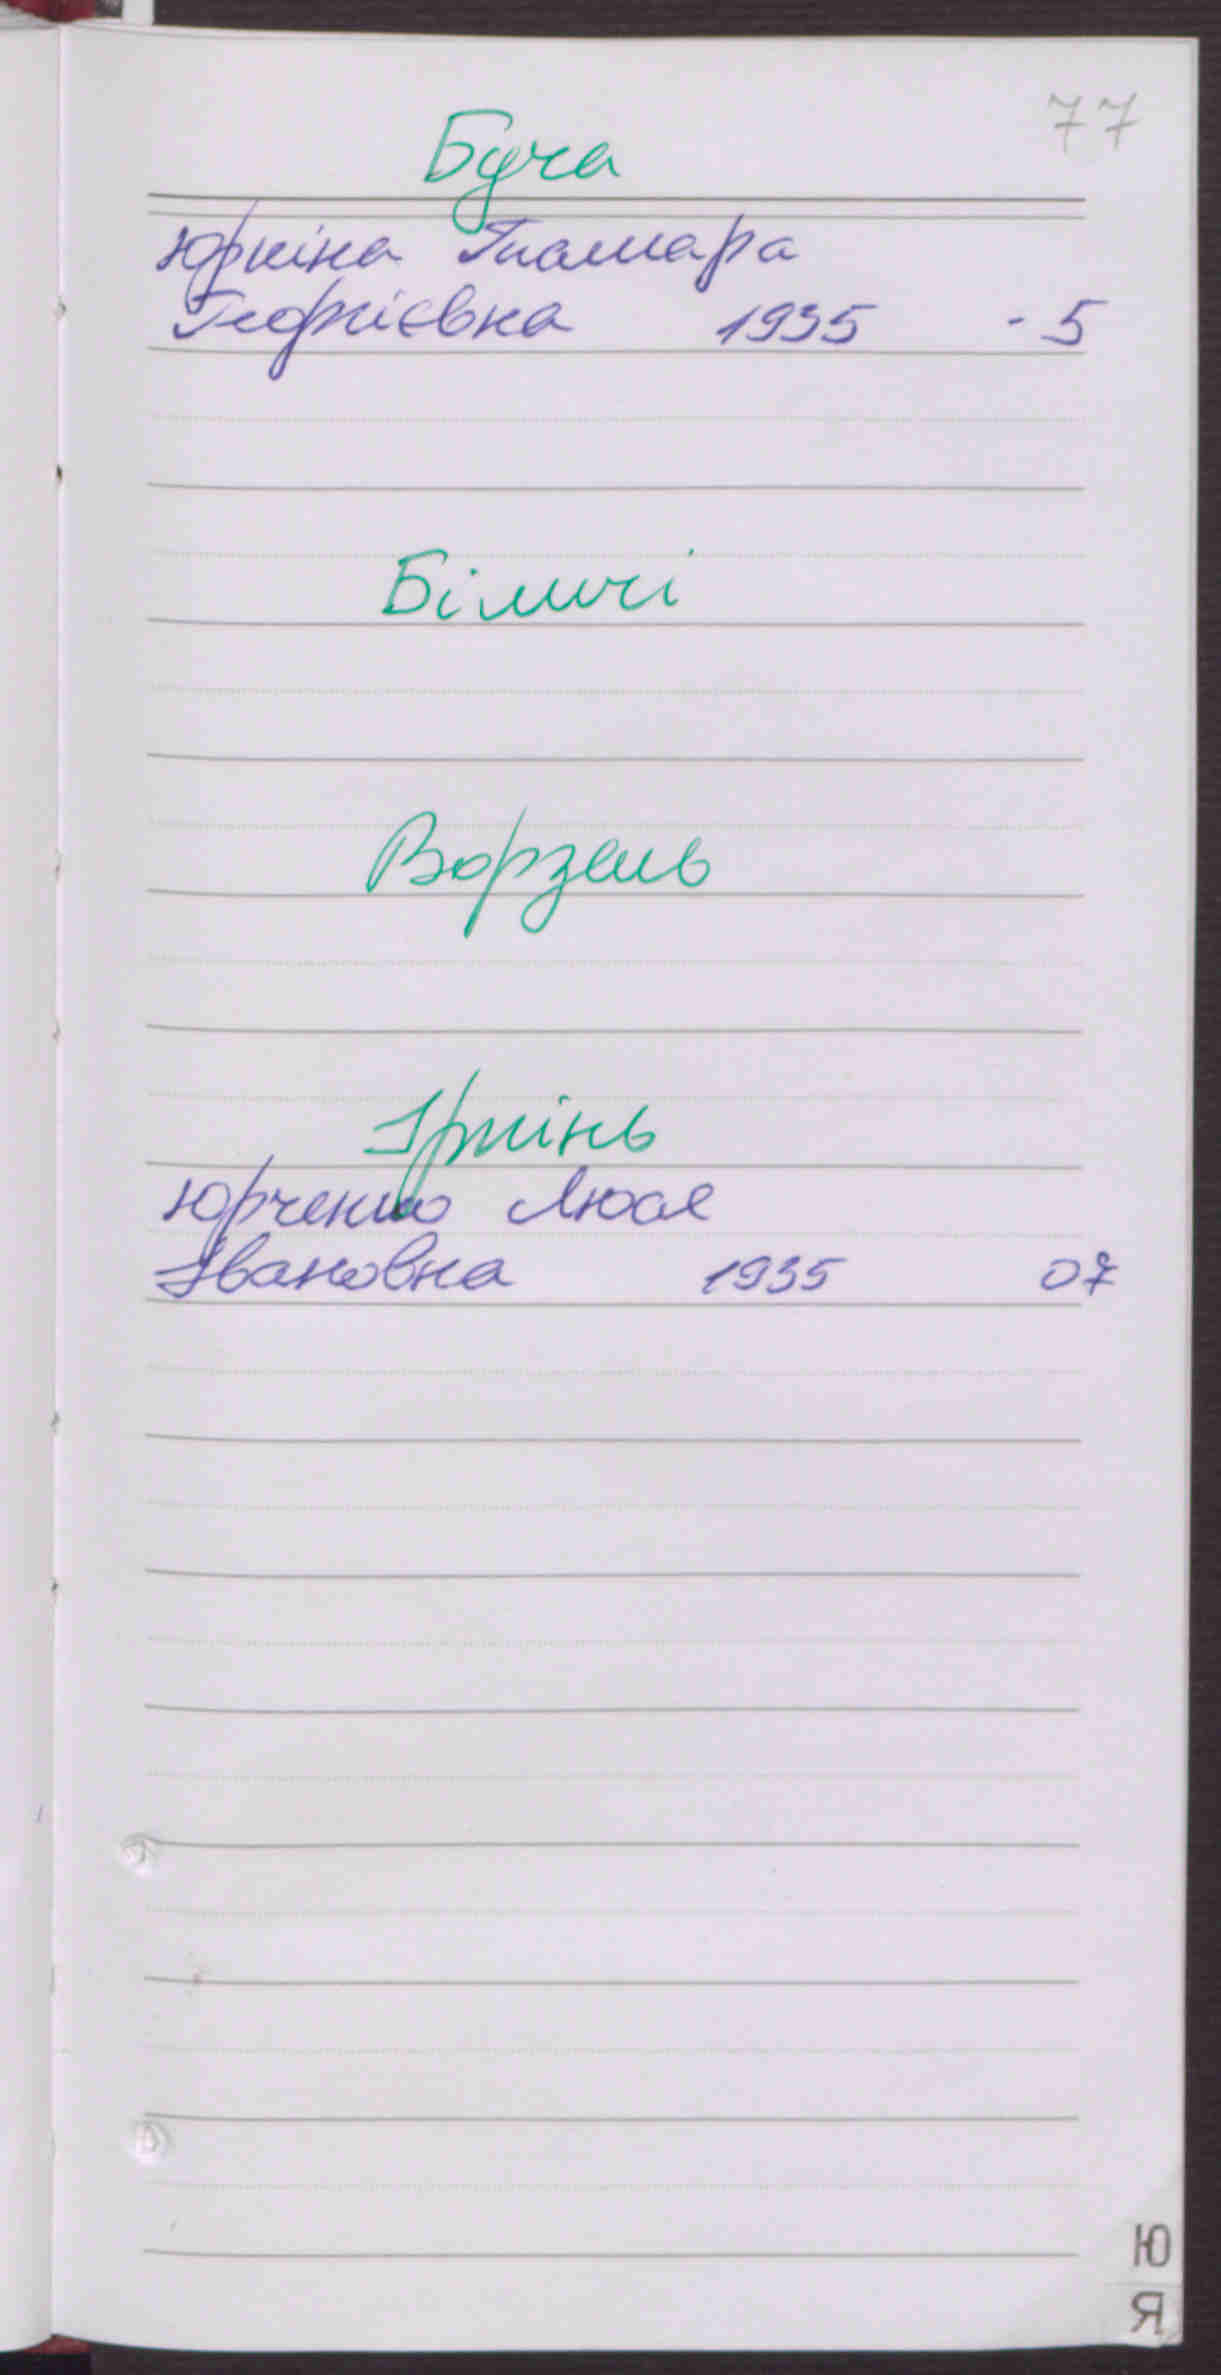 77
Буча
Юркіна Тамара
Георгієвна 1935 - 5
Біличі
Ворзель
Ірпінь
Юрченко Люся
Івановна 1935 07
Ю
Я